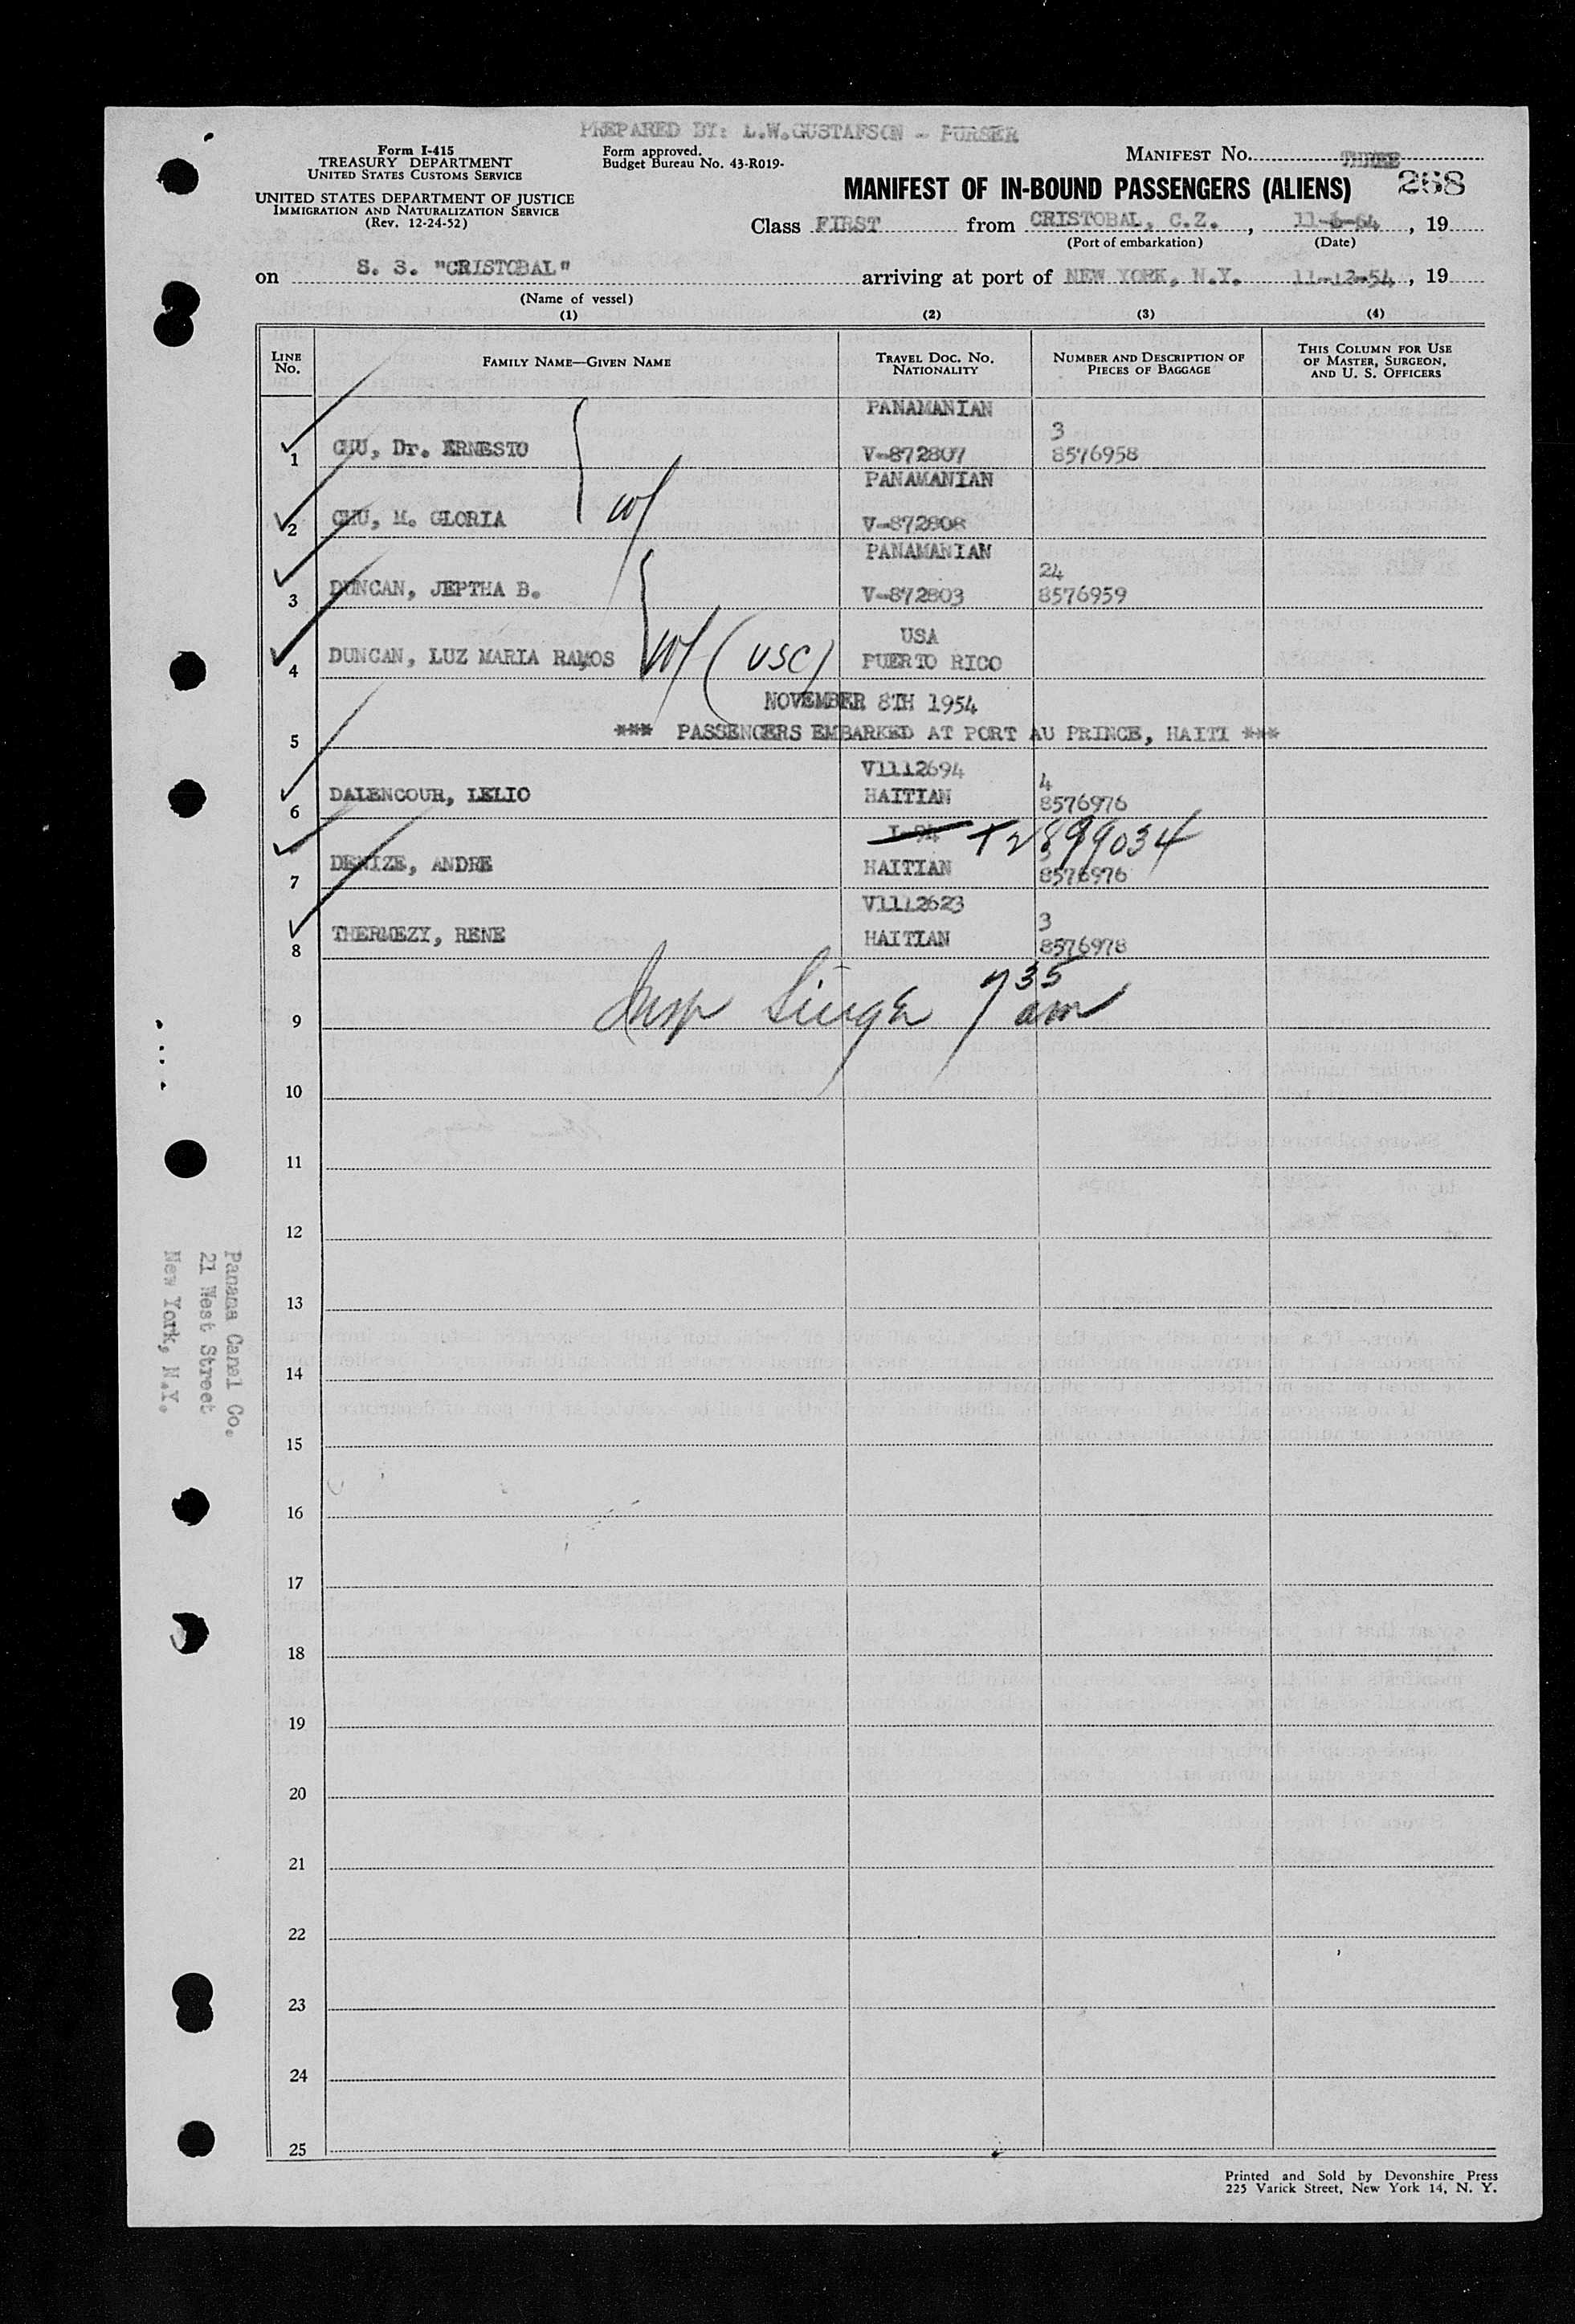 PREPARED BY: L.W.GUSTAFSON - PURSER
Form I-415
TREASURY DEPARTMENT
UNITED STATES CUSTOMS SERVICE
UNITED STATES DEPARTMENT OF JUSTICE
IMMIGRATION AND NATURALIZATION SERVICE
(Rev. 12-24-52)
Form approved.
Budget Bureau No. 43-R019-
MANIFEST NO. THREE
MANIFEST OF IN-BOUND PASSENGERS (ALIENS) 268
Class FIRST from CRISTOBAL, C.Z. , 11-6-54 , 19
(Port of embarkation) (Date)
on S. S. "CRISTOBAL" arriving at port of NEW YORK, N.Y. 11-12-54 , 19
(Name of vessel)
(1) (2) (3) (4)
LINE NO. FAMILY NAME—GIVEN NAME TRAVEL DOC. NO. NATIONALITY NUMBER AND DESCRIPTION OF PIECES OF BAGGAGE THIS COLUMN FOR USE OF MASTER, SURGEON, AND U. S. OFFICERS
PANAMANIAN 3
1 CHU, Dr. ERNESTO V-872807 8576958
PANAMANIAN
2 CHU, M. GLORIA w/ V-872808
PANAMANIAN 24
3 DUNCAN, JEPTHA B. V-872803 8576959
USA
4 DUNCAN, LUZ MARIA RAMOS w/ (USC) PUERTO RICO
NOVEMBER 8TH 1954
5 *** PASSENGERS EMBARKED AT PORT AU PRINCE, HAITI ***
V1112694 4
6 DALENCOUR, LELIO HAITIAN 8576976
I-94 T2899034
7 DENIZE, ANDRE HAITIAN 8576976
V1112623 3
8 THERMEZY, RENE HAITIAN 8576978
9 Insp Singer 7 35 am
10
11
12
13
14
15
16
17
18
19
20
21
22
23
24
25
Panama Canal Co.
21 West Street
New York, N.Y.
Printed and Sold by Devonshire Press
225 Varick Street, New York 14, N. Y.